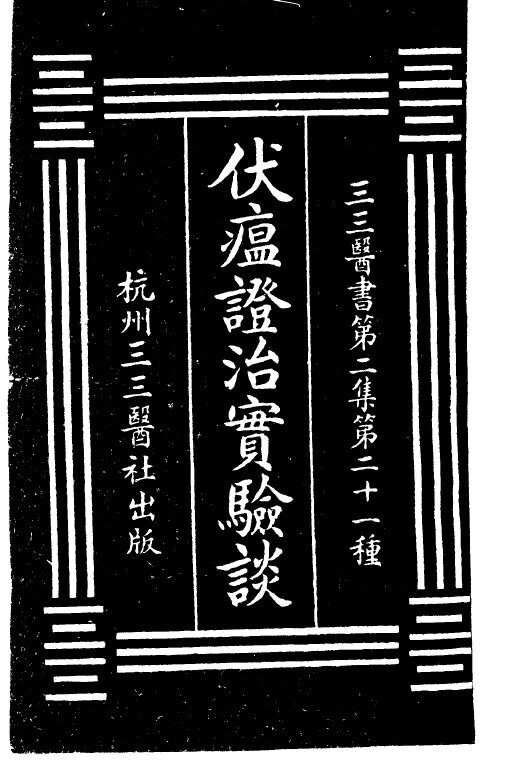 三三醫書第二集第二十一種
伏瘟證治實驗談
杭州三三醫社出版